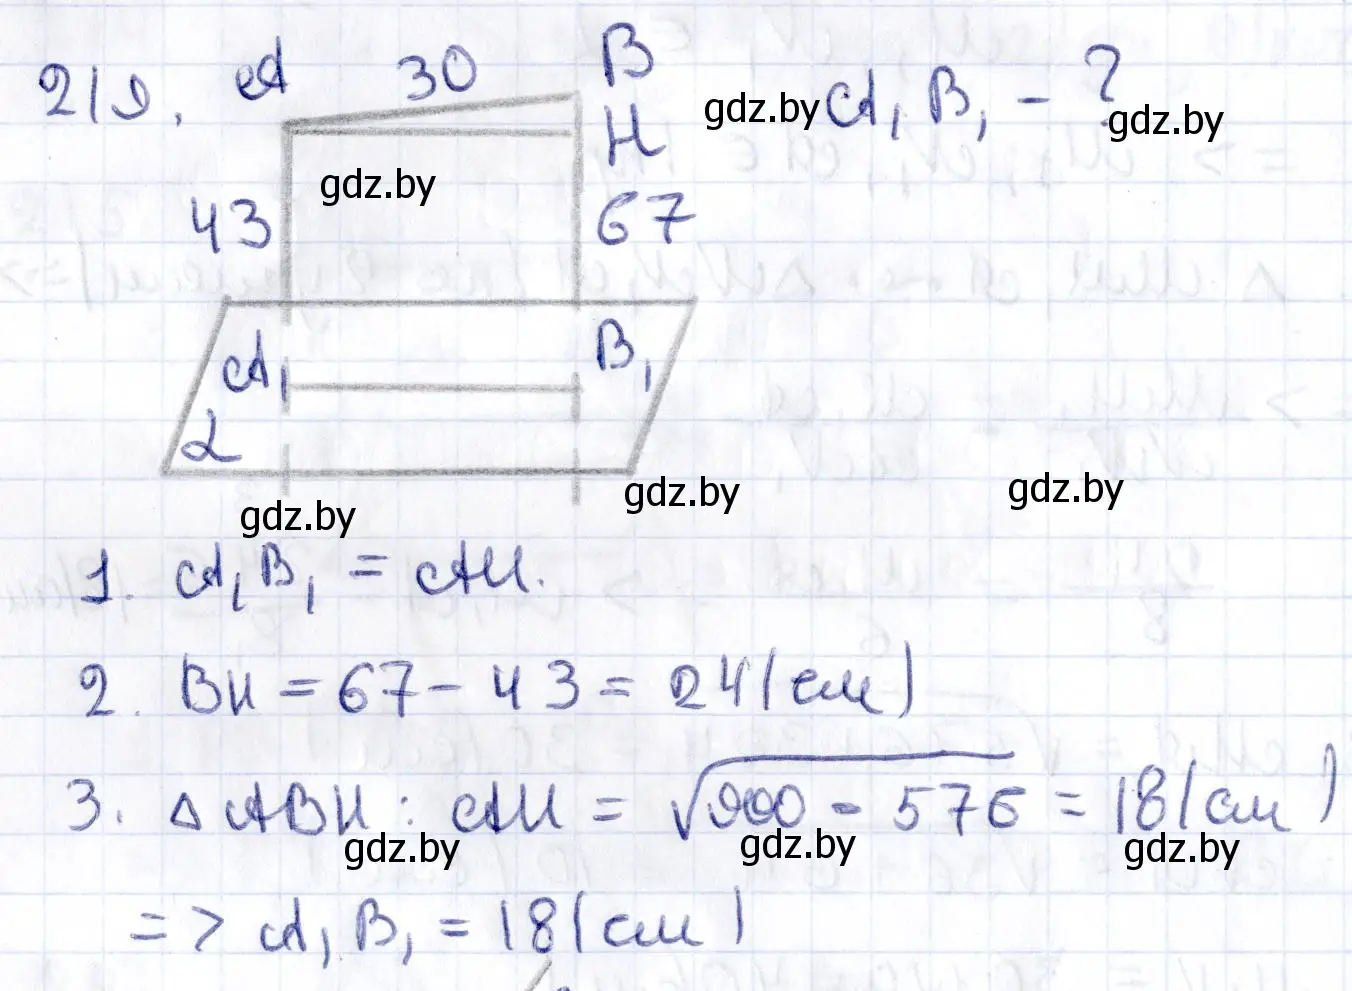 219. A 30 B A₁B₁ - ?
H
43 67
A₁ B₁
α
1. A₁B₁ = AH.
2. BH = 67 - 43 = 24 (см)
3. △ABH: AH = √900 - 576 = 18 (см)
=> A₁B₁ = 18 (см)
gdz.by
gdz.by
gdz.by
gdz.by
gdz.by
gdz.by
gdz.by
gdz.by
gdz.by